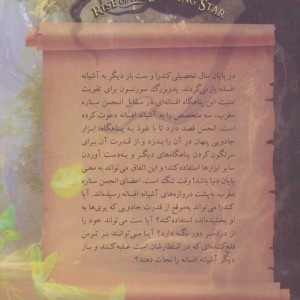 RISE OF THE EVENING STAR
در پایان سال تحصیلی کندرا و ست بار دیگر به آشیانه
افسانه بازمی‌گردند. پدربزرگ سورنسون برای تقویت
امنیت این پناهگاه افسانه‌ای در مقابل انجمن ستاره
مغرب، سه متخصص را به آشیانه افسانه دعوت کرده
است. انجمن قصد دارد تا با نفوذ به پناهگاه، ابزار
جادویی پنهان در آن را بدزد و از قدرت آن برای
سرنگون کردن پناهگاه‌های دیگر و به‌دست آوردن
سایر ابزارها استفاده کند؛ و این اتفاق می‌تواند به معنی
پایان دنیا باشد! وقت تنگ است. اعضای انجمن ستاره
مغرب به پشت دروازه‌های آشیانه افسانه رسیده‌اند. آیا
کندرا می‌تواند به‌موقع از قدرت جادویی که پری‌ها به
او بخشیده‌اند، استفاده کند؟ آیا ست می‌تواند خود را
از دردسر دور نگه دارد؟ آیا می‌توانند بر ترس
فلج‌کننده‌ای که در انتظارشان است غلبه کنند و بار
دیگر آشیانه افسانه را نجات دهند؟